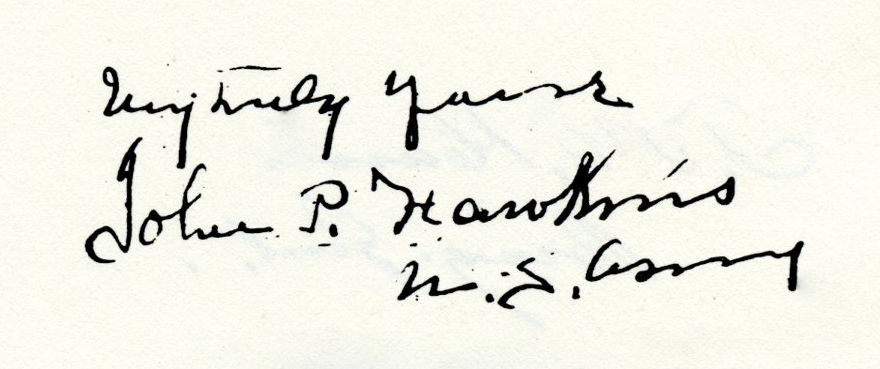 Very truly yours
John P. Hawkins
U.S. Army